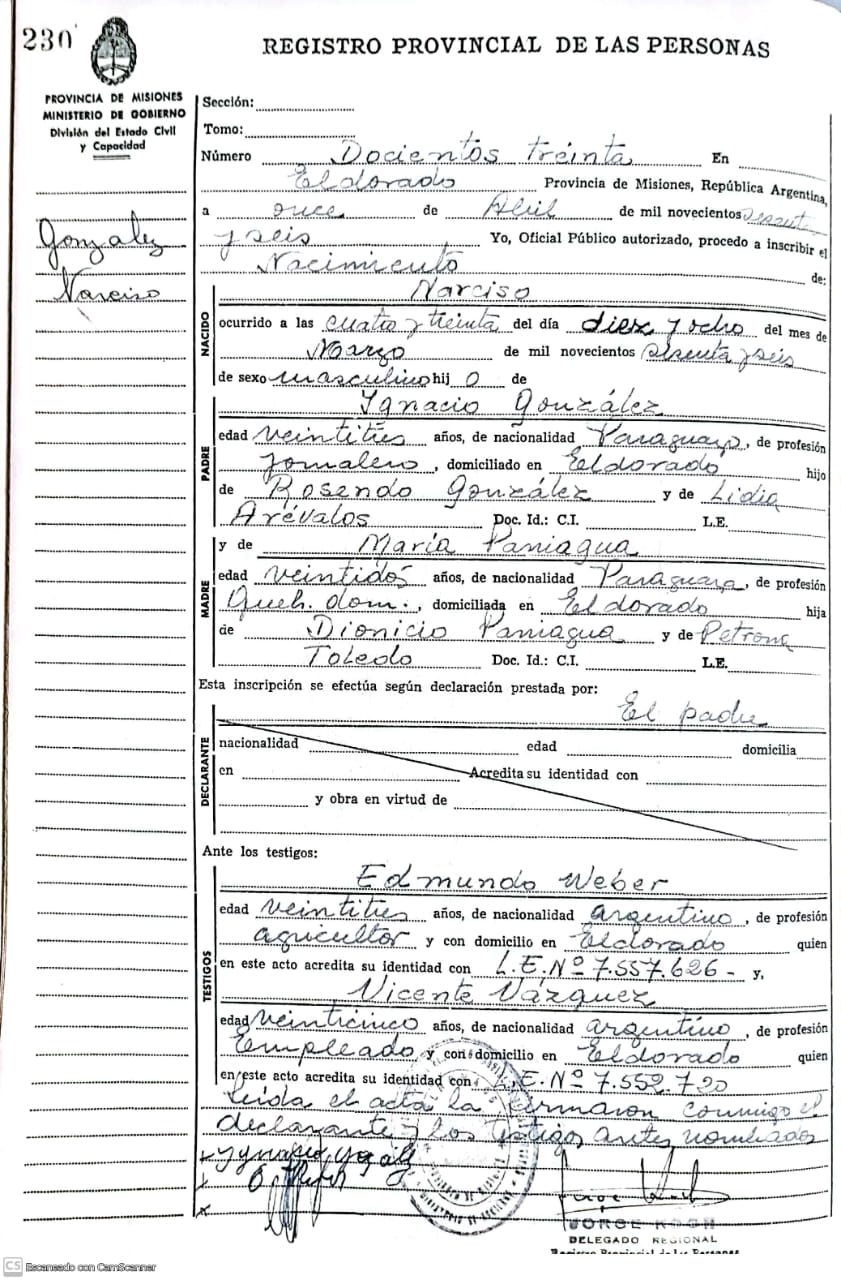 230
REGISTRO PROVINCIAL DE LAS PERSONAS
PROVINCIA DE MISIONES
MINISTERIO DE GOBIERNO
División del Estado Civil
y Capacidad
Gonzalez
Narciso
Sección:
Tomo:
Número Docientos treinta En
Eldorado Provincia de Misiones, República Argentina,
a once de Abril de mil novecientos sesenta
y seis Yo, Oficial Público autorizado, procedo a inscribir el
Nacimiento de:
NACIDO
Narciso
ocurrido a las cuatro y treinta del día diez y ocho del mes de
Marzo de mil novecientos sesenta y seis
de sexo masculino hij o de
PADRE
Ignacio González
edad veintitres años, de nacionalidad Paraguayo, de profesión
Jornalero, domiciliado en Eldorado hijo
de Rosendo González y de Lidia
Arévalos Doc. Id.: C.I. L.E.
MADRE
y de María Paniagua
edad veintidós años, de nacionalidad Paraguaya, de profesión
Queh. dom., domiciliada en Eldorado hija
de Dionicio Paniagua y de Petrona
Toledo Doc. Id.: C.I. L.E.
Esta inscripción se efectúa según declaración prestada por:
El padre
DECLARANTE
nacionalidad edad domicilia
en Acredita su identidad con
y obra en virtud de
Ante los testigos:
TESTIGOS
Edmundo Weber
edad veintitres años, de nacionalidad argentino, de profesión
agricultor y con domicilio en Eldorado quien
en este acto acredita su identidad con L.E.Nº 7.557.626- y,
Vicente Vázquez
edad veinticinco años, de nacionalidad argentino, de profesión
Empleado y con domicilio en Eldorado quien
en este acto acredita su identidad con L.E.Nº 7.552.720
Leida el acta la firmaron conmigo el
declarante y los testigos antes nombrados
JORGE KOCH
DELEGADO REGIONAL
Registro Provincial de las Personas
CS Escaneado con CamScanner